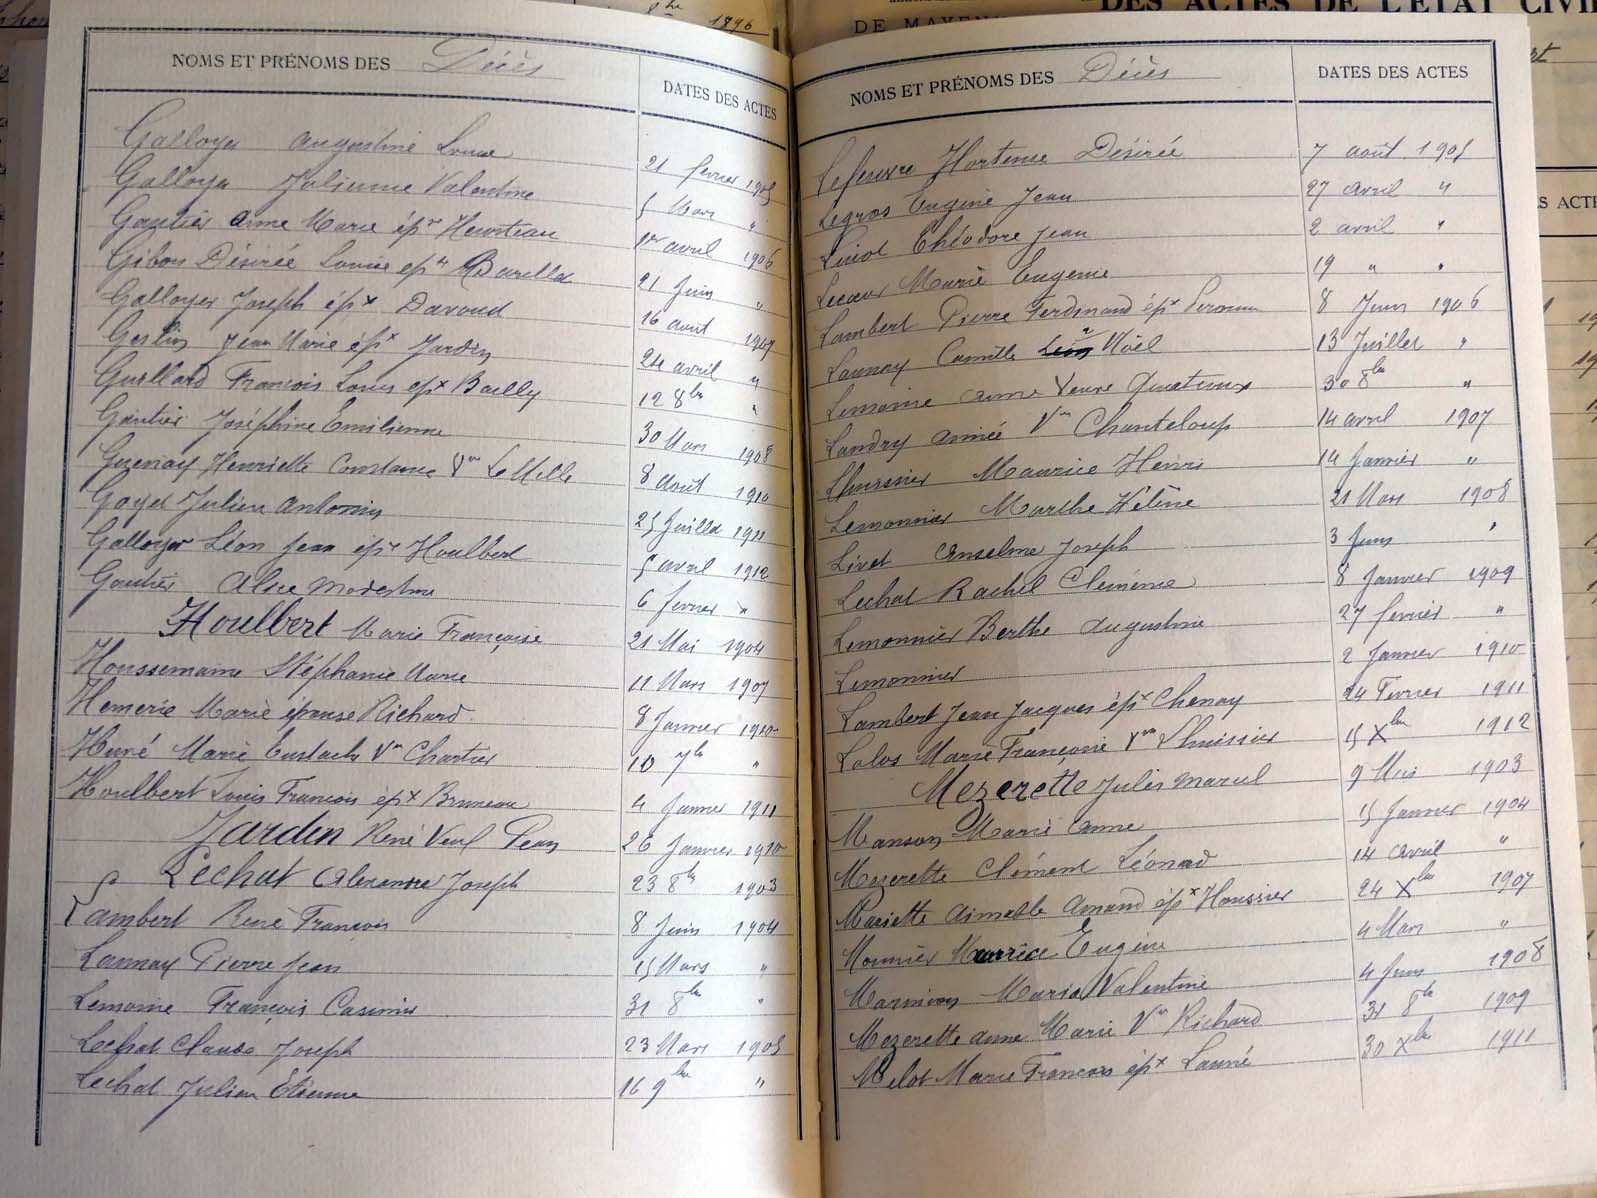 8bre 1896
DE MAYEN
DES ACTES DE L'ÉTAT CIVI
NOMS ET PRÉNOMS DES Décès
DATES DES ACTES
Galloyer Augustine Louise 21 fevrier 1905
Galloyer Julienne Valentine 5 Mars "
Gautier Anne Marie épse Heurteau 1er avril 1906
Gibon Désirée Louise épse 21 Juin "
Galloyer Joseph épx Davoud 16 aout 1907
Geslin Jean Marie épx Jardin 24 avril "
Guillard François Louis épx Bailly 12 8bre "
Gautier Joséphine Emilienne 30 Mars 1908
Henriette Constance Vve 8 Août 1910
Goyet Julien Antonin 25 Juillet 1911
Galloyer Léon Jean épx Houlbert 5 avril 1912
Gautier Alice Modestine 6 fevrier "
Houlbert Marie Françoise 21 Mai 1904
Houssemaine Stéphanie Marie 11 Mars 1907
Hemerie Marie épouse Richard 8 Janvier 1910
Huné Marie Eustach Vve Chartier 10 7bre "
Houlbert Louis François épx Bruneau 4 Janvier 1911
Jardin René Jean 26 Janvier 1910
Lechat Alexandre Joseph 23 8bre 1903
Lambert René François 8 Juin 1904
Launay Pierre Jean 15 Mars "
Lemoine François Casimir 31 8bre "
Lechat Claude Joseph 23 Mars 1905
Lechat Julien Étienne 16 9bre "
NOMS ET PRÉNOMS DES Décès
DATES DES ACTES
Lefeuvre Hortense Désirée 7 août 1905
Legros Eugène Jean 27 avril "
Théodore Jean 2 avril "
Lecoeur Marie Eugenie 19 " "
Lambert Pierre Ferdinand épx 8 Juin 1906
Launay Camille Noël 13 Juillet "
Lemoine Anne Veuve 30 8bre "
Landry Aimée Vve Chanteloup 14 avril 1907
Lhuissier Maurice Henri 14 Janvier "
Lemonnier Marthe Hélène 21 Mars 1908
Livet Anselme Joseph 3 Juin "
Lechat Rachel Clémence 8 Janvier 1909
Lemonnier Berthe Augustine 27 fevrier "
Lemonnier 2 Janvier 1910
Lambert Jean Jacques épx Chenay 24 Fevrier 1911
Marie Françoise Vve Lhuissier 15 Xbre 1912
Mezerette Jules Marcel 9 Mai 1903
Manson Marie Anne 15 Janvier 1904
Mezerette Clément Léonard 14 avril "
Mariette Aimable Amand épx Houssier 24 Xbre 1907
Mounier Maurice Eugène 4 Mars "
Marie Valentine 4 Juin 1908
Mezerette Anne Marie Vve Richard 31 8bre 1909
Melot Marie François épx Launé 30 Xbre 1911
S ACTE